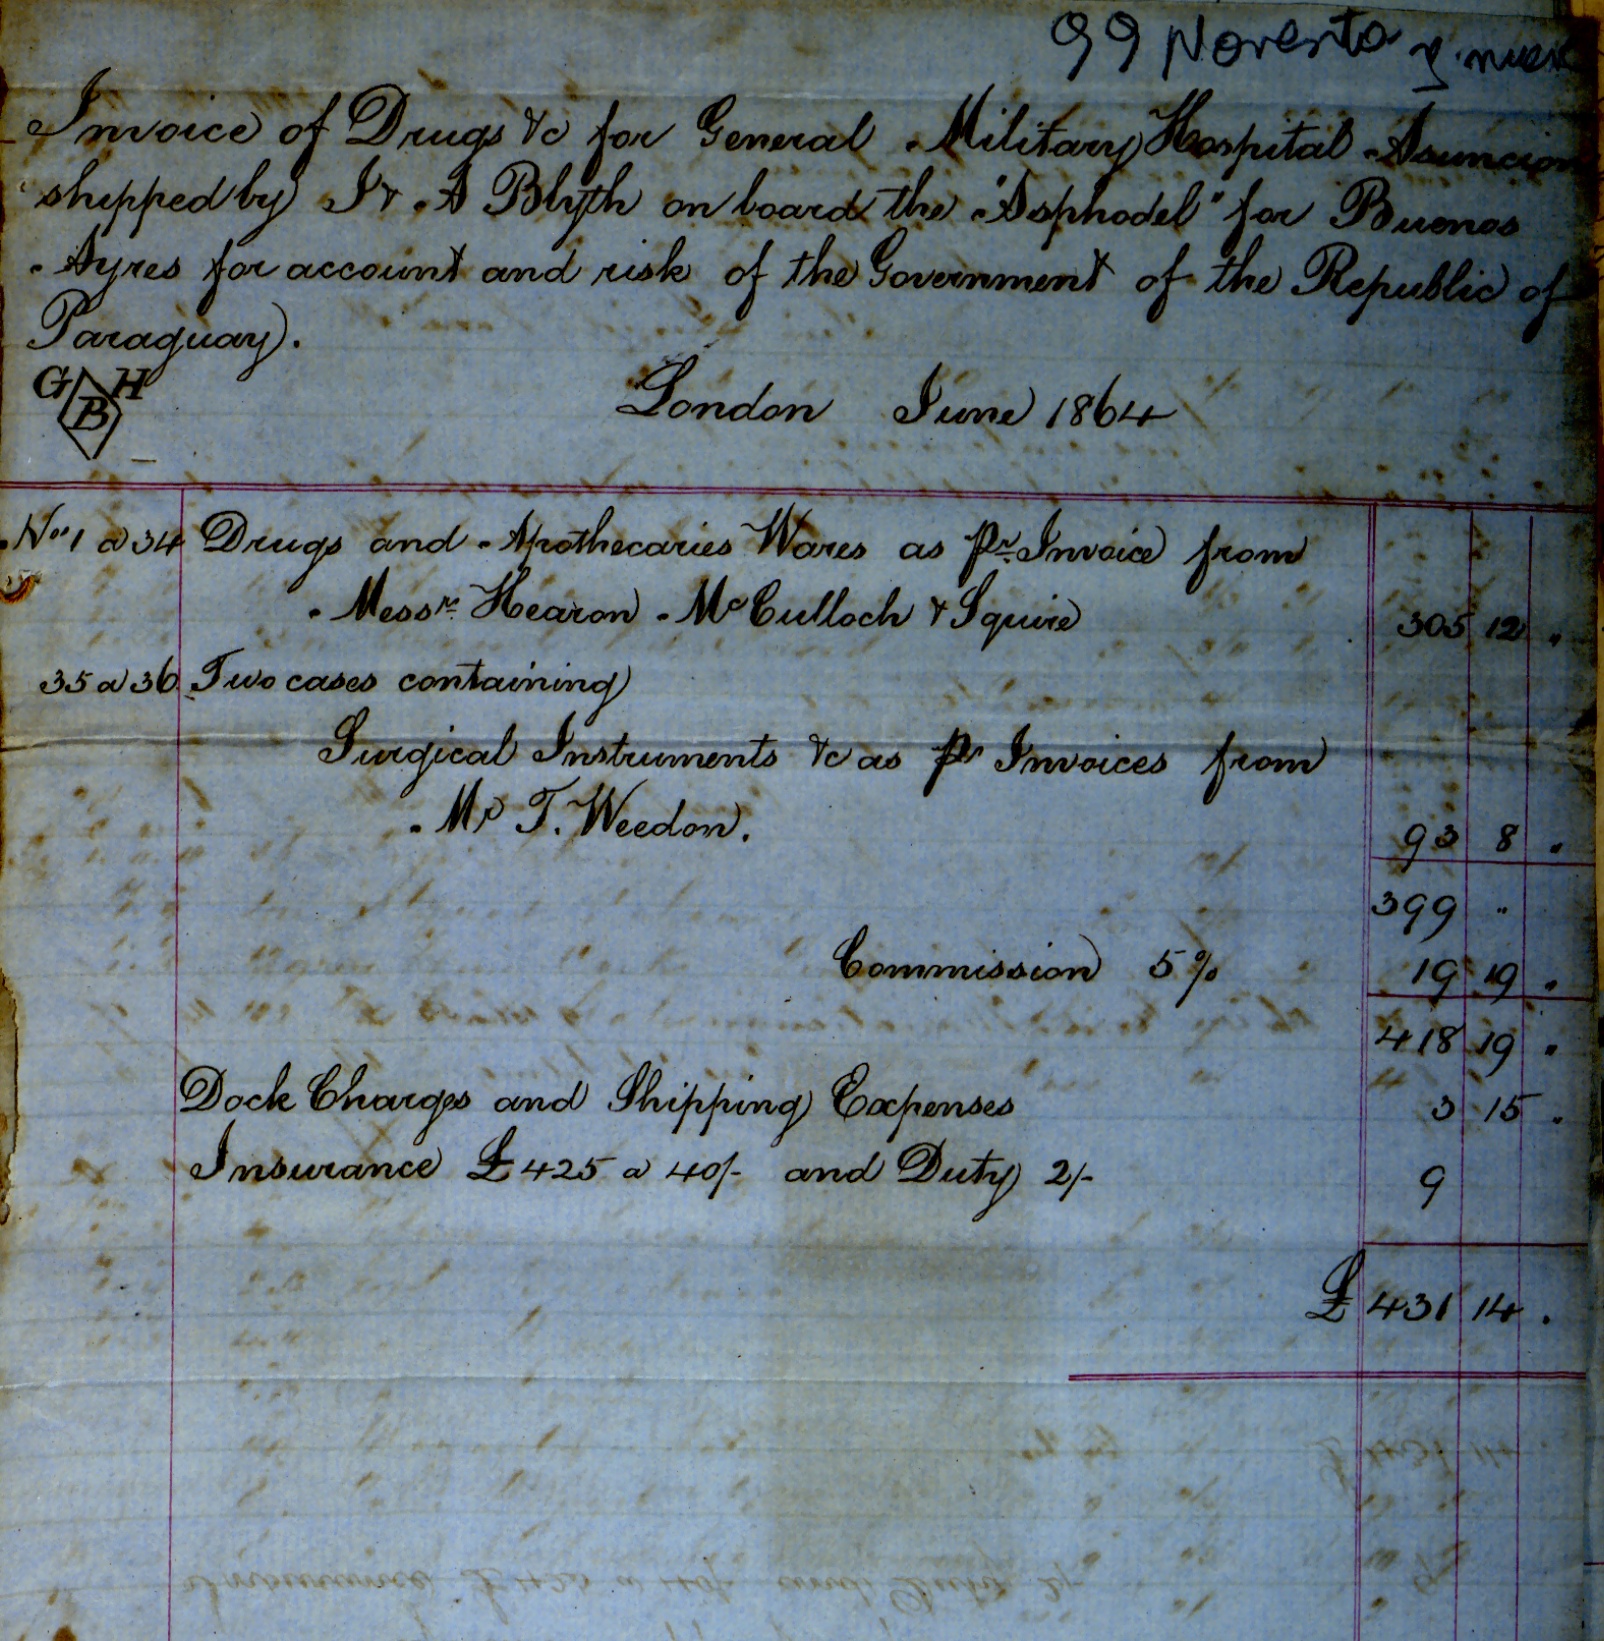 99 Noventa y nuev
Invoice of Drugs &c for General Military Hospital Asuncion
shipped by J & A Blyth on board the "Asphodel" for Buenos
Ayres for account and risk of the Government of the Republic of
Paraguay.
G H
B
London June 1864
Nos 1 a 34 Drugs and Apothecaries Wares as Pr Invoice from
Messrs Hearon McCulloch & Squire 305 12 "
35 a 36 Two cases containing
Surgical Instruments &c as pr Invoices from
Mr T. Weedon. 93 8 "
399 "
Commission 5% 19 19 "
418 19 "
Dock Charges and Shipping Expenses 3 15 "
Insurance £425 a 40/- and Duty 2/- 9
£ 431 14 .